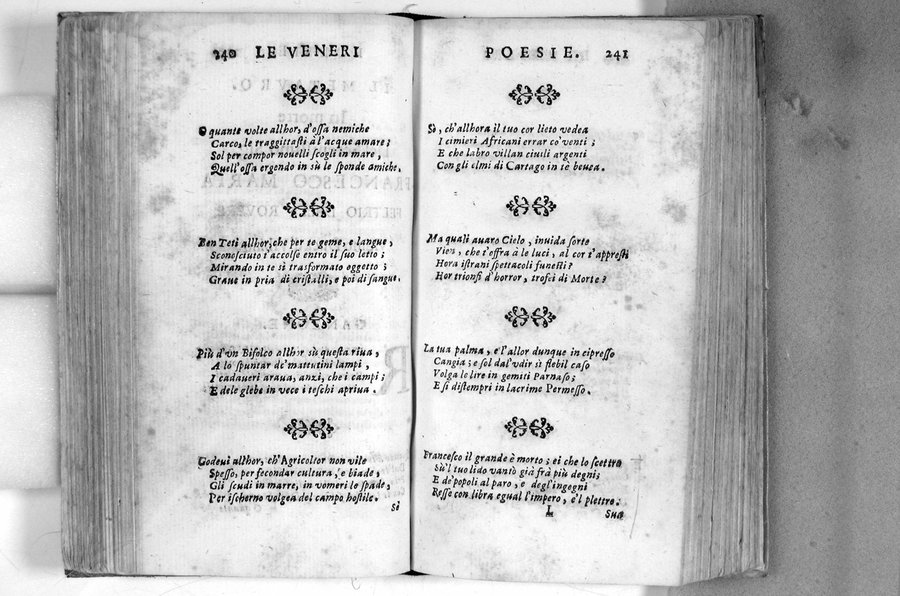 240 LE VENERI
O quante volte allhor, d'ossa nemiche
Carco, le traggittasti à l'acque amare;
Sol per compor nouelli scogli in mare,
Quell'ossa ergendo in sù le sponde amiche.
Ben Teti allhor, che per te geme, e langue,
Sconosciuto t'accolse entro il suo letto;
Mirando in te si trasformato oggetto;
Graue in pria di cristalli, e poi di sangue.
Più d'vn Bifolco allhor sù questa riua,
A lo spuntar de' mattutini lampi,
I cadaueri araua, anzi, che i campi;
E dele glebe in vece i teschi apriua.
Godeui allhor, ch'Agricoltor non vile
Spesso, per fecondar cultura, e biade,
Gli scudi in marre, in vomeri le spade,
Per ischerno volgea del campo hostile.
Sì
POESIE. 241
Sì, ch'allhora il tuo cor lieto vedea
I cimieri Africani errar co' venti;
E che labro villan ciuili argenti
Con gli elmi di Cartago in tè beuea.
Ma quali auaro Cielo, inuida sorte
Vien, che t'offra à le luci, al cor t'appresti
Hora istrani spettacoli funesti?
Hor trionfi d'horror, trofei di Morte?
La tua palma, e l'allor dunque in cipresso
Cangia; e sol dal'vdir sì flebil caso
Volga le lire in gemiti Parnaso;
E si distempri in lacrime Permesso.
Francesco il grande è morto; ei che lo scettro
Sù'l tuo lido vantò già frà più degni;
E de' popoli al paro, e degl'ingegni
Resse con libra egual l'impero, e'l plettro.
L Sua